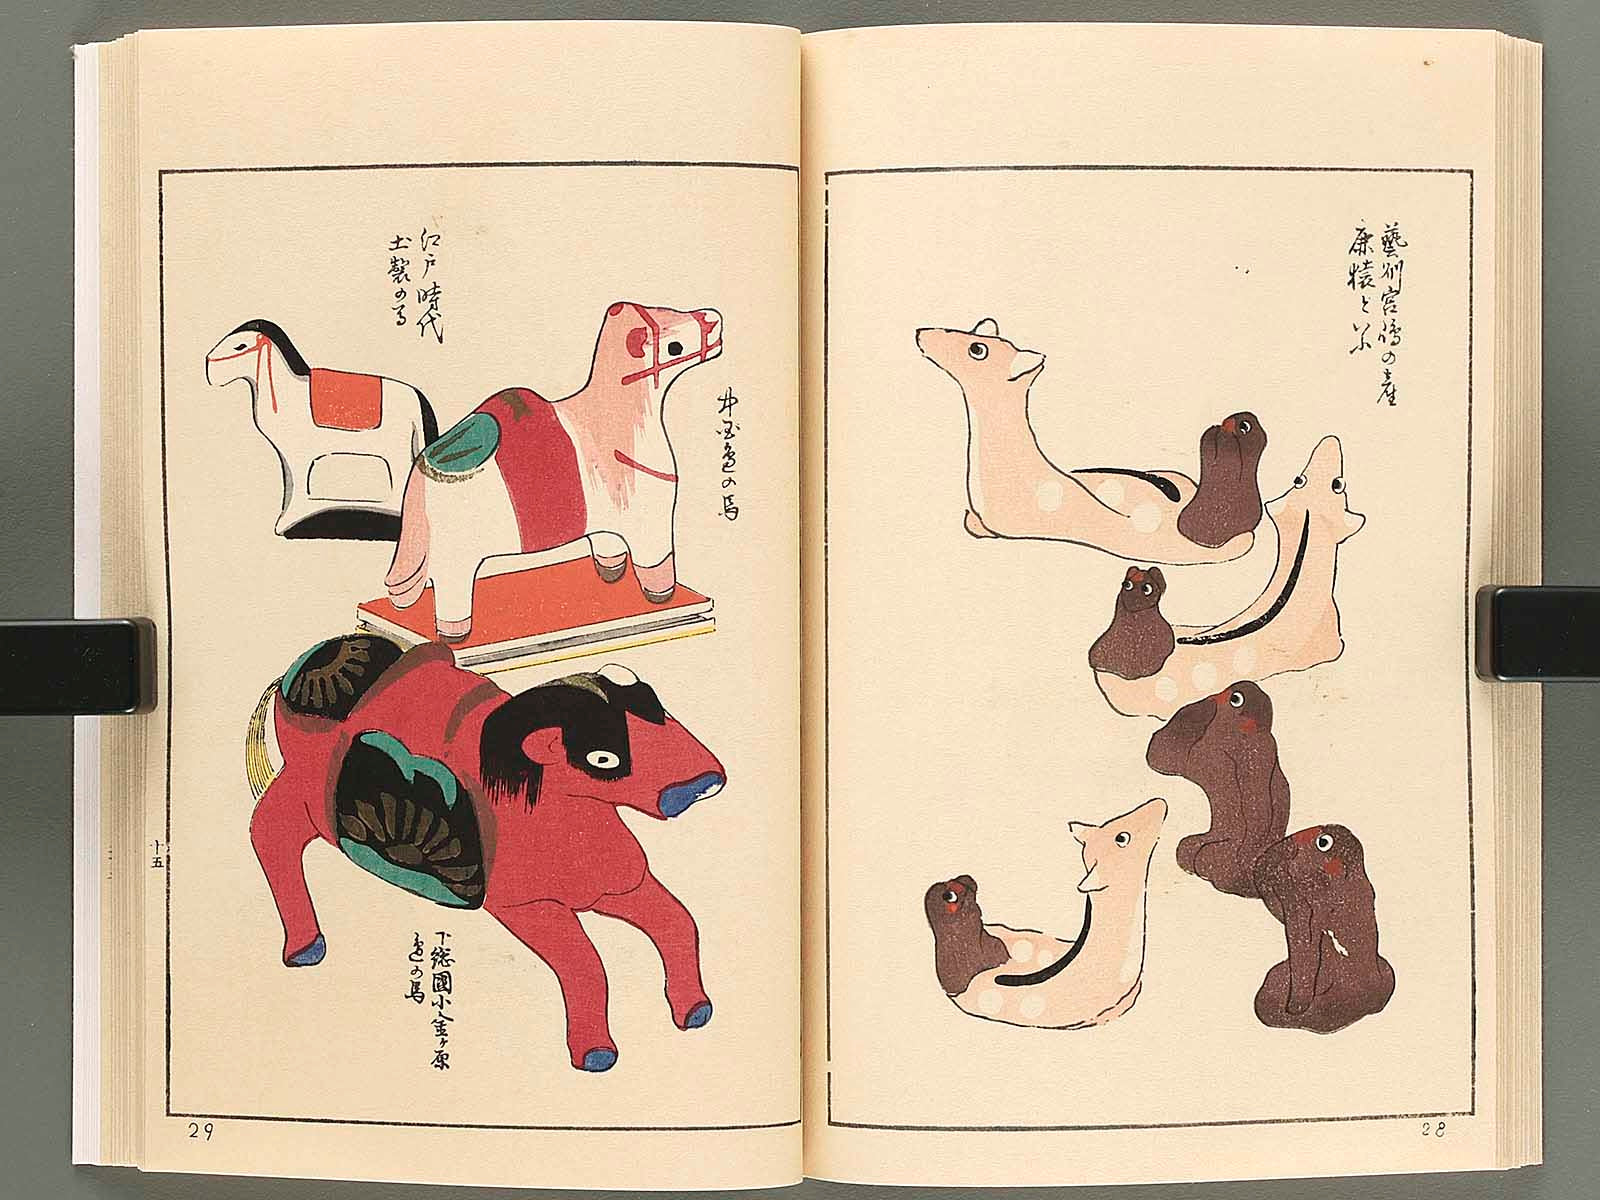 藝州宮島の産
鹿猿と云
28
江戸時代
土製の馬
の馬
下総國小金ヶ原
邊の馬
十五
29